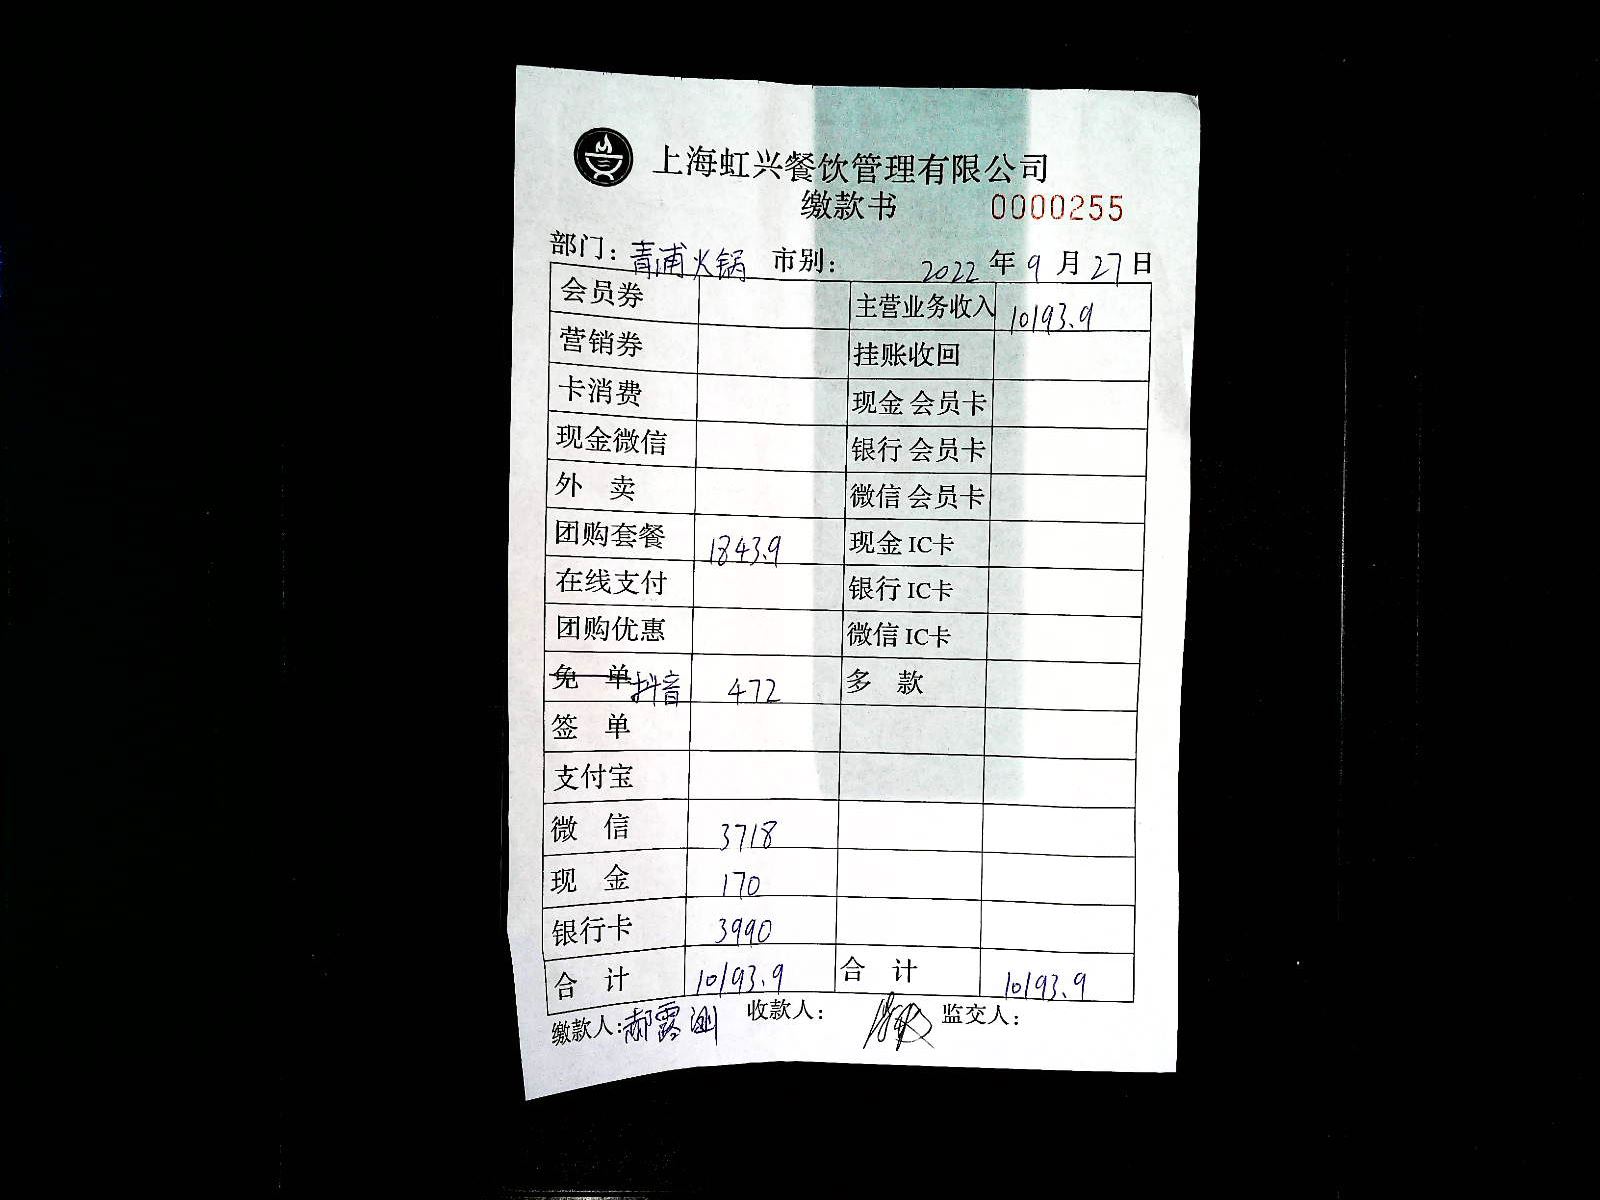 上海虹兴餐饮管理有限公司
缴款书 0000255
部门：青浦火锅 市别： 2022 年 9 月 27 日
会员券 主营业务收入 10193.9
营销券 挂账收回
卡消费 现金 会员卡
现金微信 银行 会员卡
外 卖 微信 会员卡
团购套餐 1843.9 现金 IC卡
在线支付 银行 IC卡
团购优惠 微信 IC卡
免 单 抖音 472 多 款
签 单
支付宝
微 信 3718
现 金 170
银行卡 3990
合 计 10193.9 合 计 10193.9
缴款人：郝露 收款人： 监交人：